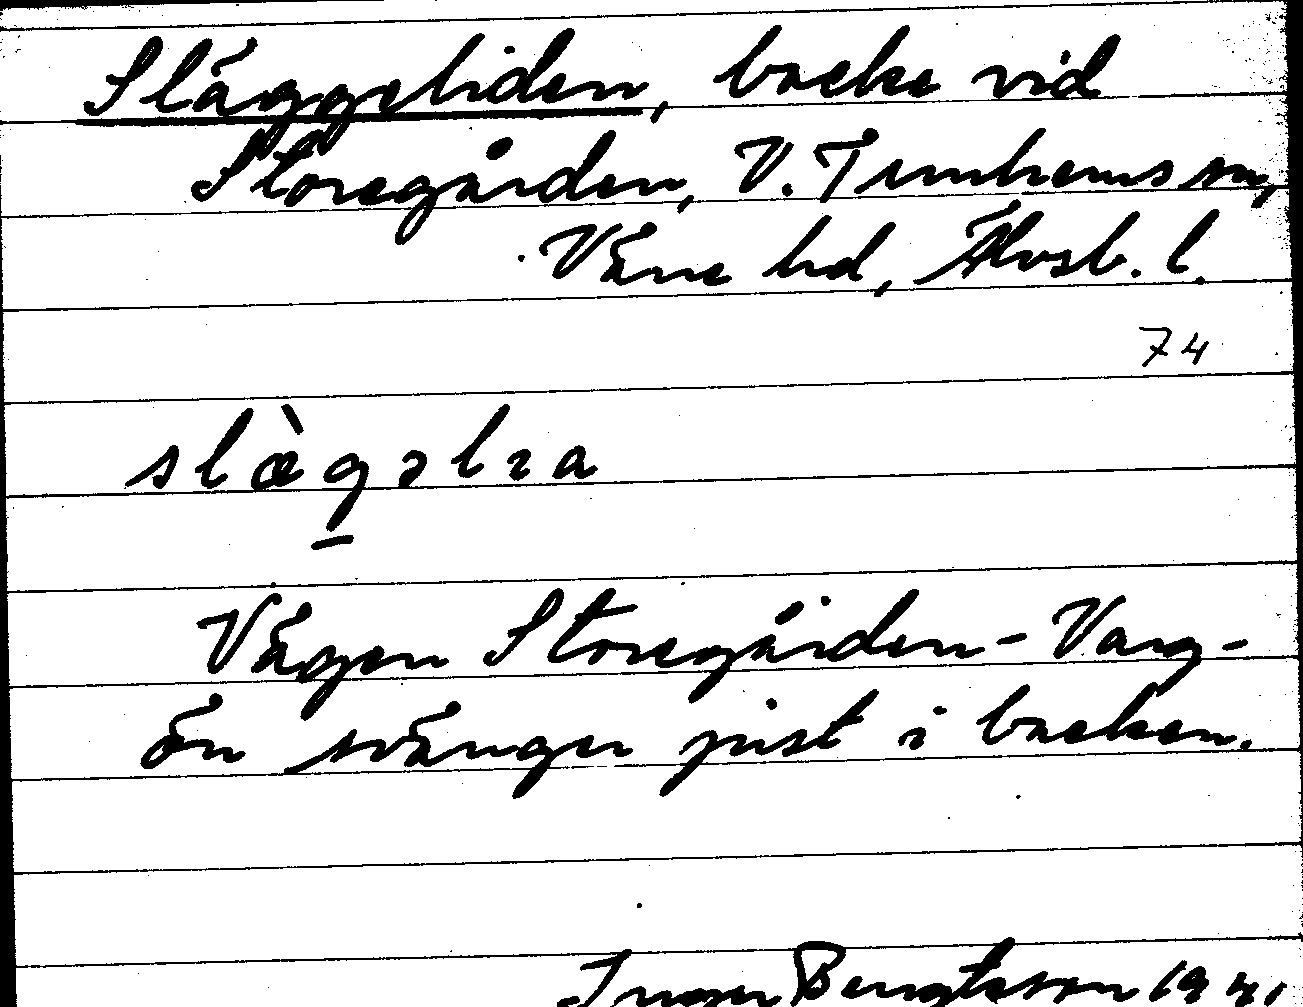 Släggeliden, backe vid
Storegården, V. Tunhems sn,
Väne hd, Älvsb. l.
74
slæ̀g̱əlıa
Vägen Storegården-Varg-
ön svänger just i backen.
Inger Bengtsson 1941